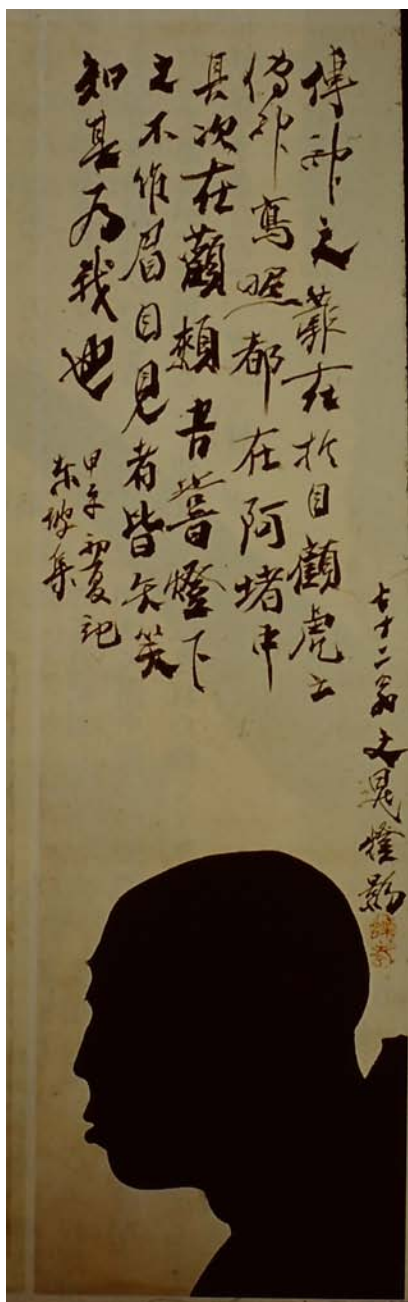 傳神之難在於目顧虎云
傳神寫照都在阿堵中
其次在顴頰吾嘗燈下
之不作眉目見者皆失笑
知其为我也
甲午初夏記
东坡集
七十二翁文晁燈影